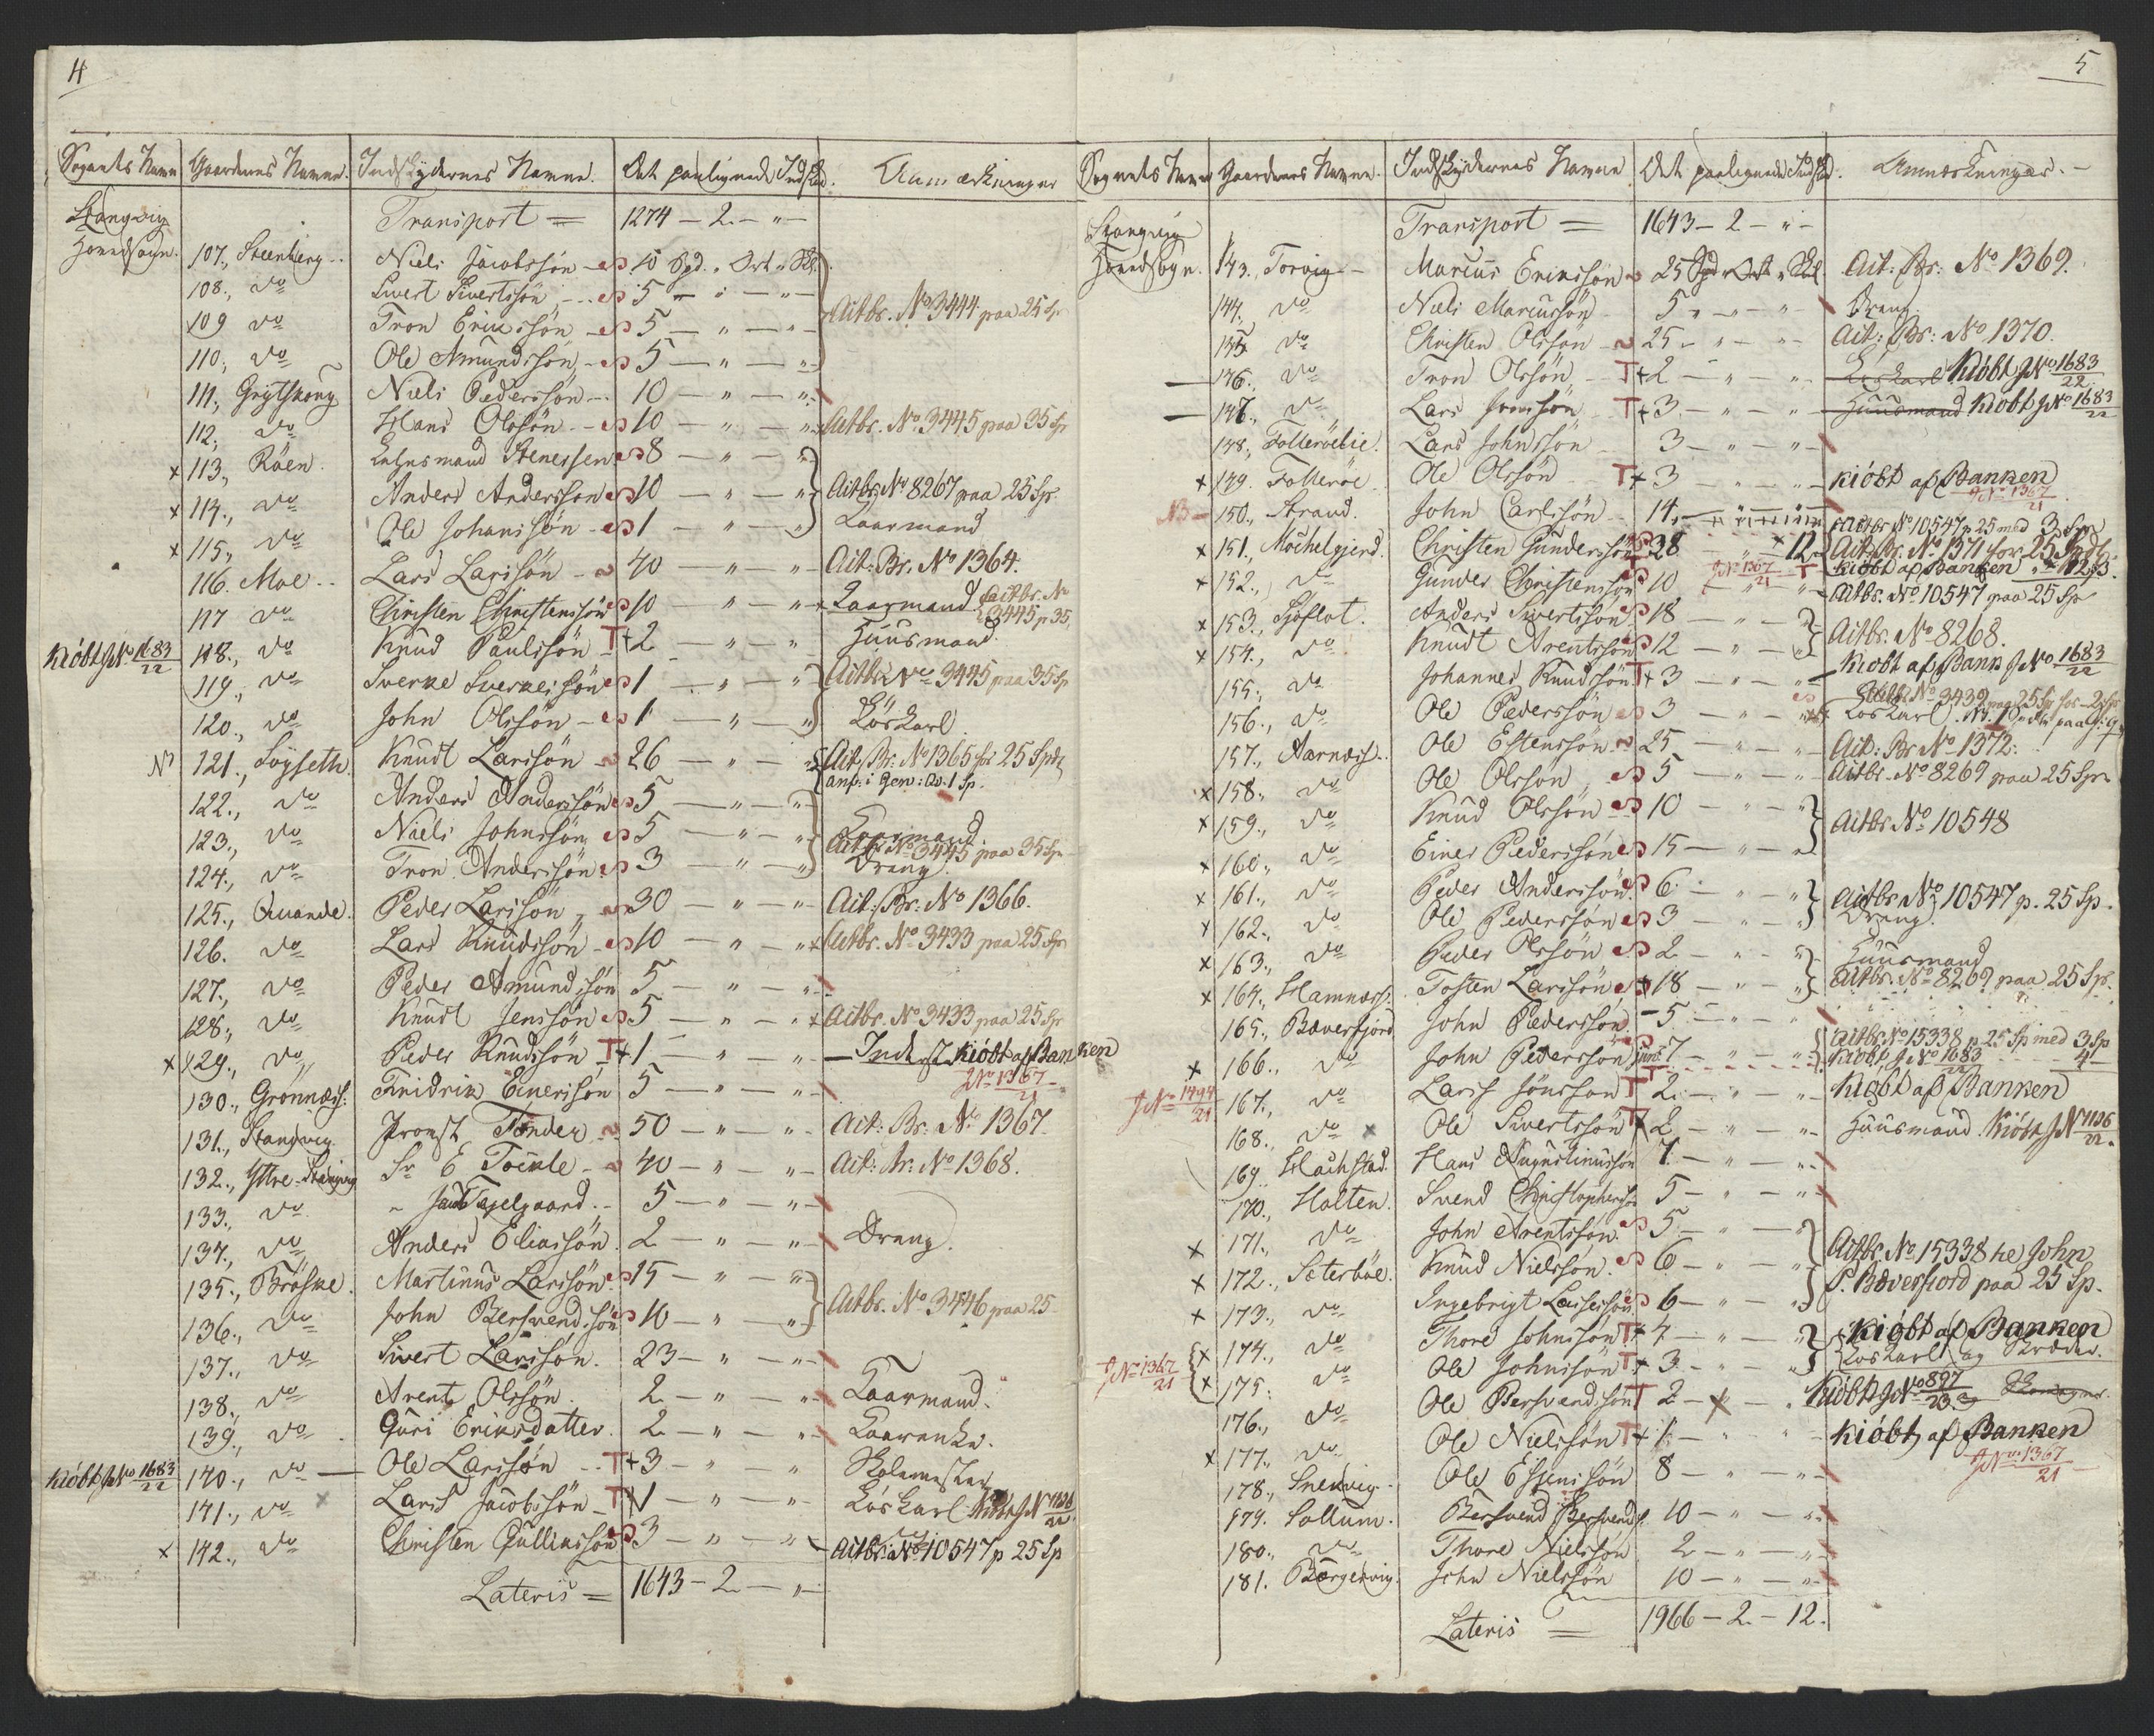 4
Sognets Navn | Gaardenes Navne. | Indskydernes Navne. | Det paalignede Indskud. | Anmærkninger
Stangvig Transport = 1274 - 2 - " -
Hovedsogn. 107., Steenberg.. Niels Jacobssøn - 10 Spd. " Ort " Sk.
108., do Sivert Sivertssøn - 5 - " - " -
109 do Tron Erikssøn - 5 - " - " - Actbr. No 3444 paa 25 Sp
110., do Ole Amundssøn - 5 - " - " -
111., Grytskong Niels Pederssøn - 10 - " - " -
112., do Hans Olssøn - 10 - " - " - Actbr. No 3445 paa 35 Sp
x 113., Røen. Stenersen 8 - " - "
x 114., do Anders Anderssøn 10 - " - " Actbr. No 8267 paa 25 Sp.
x 115., do Ole Johanssøn - 1 - " - " Laarmand
116. Moe.. Lars Larssøn - 40 - " - " - Act: Br. No 1364.
117 do Christen Christenssøn 10 - " - " - Laarmand Actbr. No 3445 p 35,
Kiøbt JNo 1683/22 118., do Knud Paulssøn T + 2 - " - " Huusmand.
119., do Sverke Sverkessøn 1 - " - " Actbr. No 3445 paa 35 Sp
120., do John Olssøn - 1 - " - " Løskarl
121., Søyseth. Knudt Larssøn 26 - " - " - Act: Br: No 1365 for 25 Spd
anf: i Gen: 1 Sp.
122., do Anders Anderssøn 5 - " - "
123., do Niels Johnssøn 5 - " - " Laarmand
124., do Tron Anderssøn 3 - " - " Actbr. No 3445 paa 35 Sp. Dreng.
125., Qvande. Peder Larssøn 30 - " - " - Act: Br: No 1366.
126. do Lars Knudssøn 10 - " - " x Actbr. No 3433 paa 25 Sp
127., do Peder Amundssøn 5 - " - " -
128., do Knudt Jenssøn 5 - " - " x Actbr. No 3433 paa 25 Sp
x 129., do Peder Knudssøn T + 1 - " - " - Inderst Kiøbt af Banken
JNo 1367/21
130., Grønnæss. Fridrik Einerssøn 5 - " - " -
131., Stangvig. Provst Tønder 50 - " - " - Act: Br: No 1367.
132., Yttre-Stangvig Sr E Tockle - 40 - " - " - Act: Br: No 1368.
133., do - Jacob Tapelgaard. - 5 - " - " -
134., do Anders Eliassøn. 2 - " - " - Dreng.
135., Brøske. Martinus Larssøn 15 - " - "
136., do John Bersvendssøn 10 - " - " Actbr. No 3446 paa 25
137., do Sivert Larssøn. 23 - " - " -
138., do Arent Olssøn. 2 - " - " - Laarmand.
139., do Guri Eriksdatter. 2 - " - " - Laarenke.
Kiøbt JNo 1683/22 140., do Ole Larssøn T + 3 - " - " Skolemester
141., do x Lars Jacobssøn T 1 - " - " - Løskarl Kiøbt JN 1136/22
x 142., do Christen Gullikssøn 3 - " - " - Actbr. No 10547 p 25 Sp
Lateris = 1643 - 2 - " -
5
Sognets Navn | Gaardenes Navne. | Indskydernes Navne | Det paalignede Indskud. | Anmærkninger. -
Stangvig Transport = 1643 - 2 - " -
Hovedsogn. 143., Torvig - Marcus Erikssøn 25 Spd " Ort " Skl. Act: Br: No 1369.
144., do Niels Marcussøn 5 " - " - Dreng
145 do Christen Olssøn 25 - " - " - Act: Br: No 1370.
- 146., do Tron Olssøn T + 2 - " " - Løskarl Kiøbt JNo 1683/22
- 147., do Lars T + 3 - " - " - Huusmand Kiøbt JNo 1683/22
148., Follerøelie. Lars Johnssøn 3 - " -
x 149. Follerøe. Ole Olssøn T + 3 - " - " - kiøbt af Banken
JNo 1367/21
NB - 150., Strand. John Carlssøn 14 Actbr No 10547 p 25 med 3 Sp
x 151., Møchelgjerd. Christen Gunderssøn 28 x 12 Act: Br. No 1371 for 25 Spd.
x 152., do Gunder Christenssøn 10 JNo 1367/21 T kiøbt af Banken 12 s.
Actbr. No 10547 paa 25 Sp
x 153., Sjøflot. Anders Sivertssøn 18 - " - "
x 154., do Knudt Arentssøn 12 - " - " Actbr. No 8268.
155., do Johannes Knudssøn T + 3 - " - " - Kiøbt af Bank JNo 1683/22
156., do Ole Pederssøn 3 - " - " Actbr. No 3439 paa 25 Sp for 2 Sp Løskarl
157., Aarnæss. Ole Estenssøn 25 - " - " - Act: Br No 1372.
x 158., do Ole Olssøn 5 - " - " - Actbr. No 8269 paa 25 Sp.
x 159., do Knud Olssøn 10 - " - "
x 160., do Einer Pederssøn 15 - " - " Actbr. No 10548
x 161., do Peder Anderssøn 6 - " - "
x 162., do Ole Pederssøn 3 - " - " Actbr. No 10547 p. 25 Sp. Dreng.
x 163., do Peder Olssøn 2 - " - " Huusmand
x 164., Hamnæss. Tosten Larssøn 18 - " - " Actbr. No 8269 paa 25 Sp.
165., Bæverfjord John Pederssøn - 5 - " - "
x 166., do John Pederssøn jun: 7 - " - " Actbr. No 15338 p 25 Sp med 3 Sp
kiøbt JNo 1683/22 4 -
JNo 1494/21 167., do Lars Jonssøn T 2 - " - " - kiøbt af Banken
168., do x Ole Sivertssøn T 2 - " - " - Huusmand Kiøbt JN 1136/22.
169., Hachstad. Hans Augustinussøn 7 - " - " -
170., Holten. Svend Christophersø 5 - " - " -
x 171., do John Arentssøn 5 - " -
x 172., Sæterbøe. Knud Nielssøn. 6 - " - " Actbr. No 15338 til John
x 173., do Ingebrigt Lassessøn 6 - " - " P. Bæverfiord paa 25 Sp.
JNo 1367/21 x 174., do Thore Johnssøn T + 4 - " - " kiøbt af Banken
x 175., do Ole Johnssøn T + 3 - " - " Løskarl og
176., do Ole Bersvendssøn T 2 - x - " Kiøbt JNo 897/23.
x 177., do Ole Nielssøn T + 1 - " - " - kiøbt af Banken
JNo 1367/21
178., Snekvig. Ole Espenssøn 8 - " - " -
179. Sollum. Bersvend Bersvends. 10 - " - " -
180., do Thore Nielssøn 2 - " - " -
181. Børgervig. John Nielssøn 10 - " - " -
Lateris = 1966 - 2 - 12.